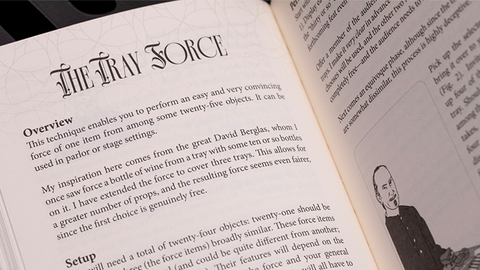 The Tray Force
Overview
This technique enables you to perform an easy and very convincing
force of one item from among some twenty-five objects. It can be
used in parlor or stage settings.
My inspiration here comes from the great David Berglas, whom I
once saw force a bottle of wine from a tray with some ten or so bottles
on it. I have extended the force to cover three trays. This allows for
a greater number of props, and the resulting force seems even fairer,
since the first choice is genuinely free.
Setup
will need a total of twenty-four objects: twenty-one should be
three (the force items) broadly similar. These force items
(and could be quite different from another;
Their features will depend on the
the force and your general
will all have to
Offer a member of the
trays. I make a
chosen will be used, and the other two
completely free—and the audience needs to
Next comes an equivoque phase, although since the
are somewhat dissimilar, this process is highly deceptive.
Pick up the
bring it over to
(Fig. 2).
up four of